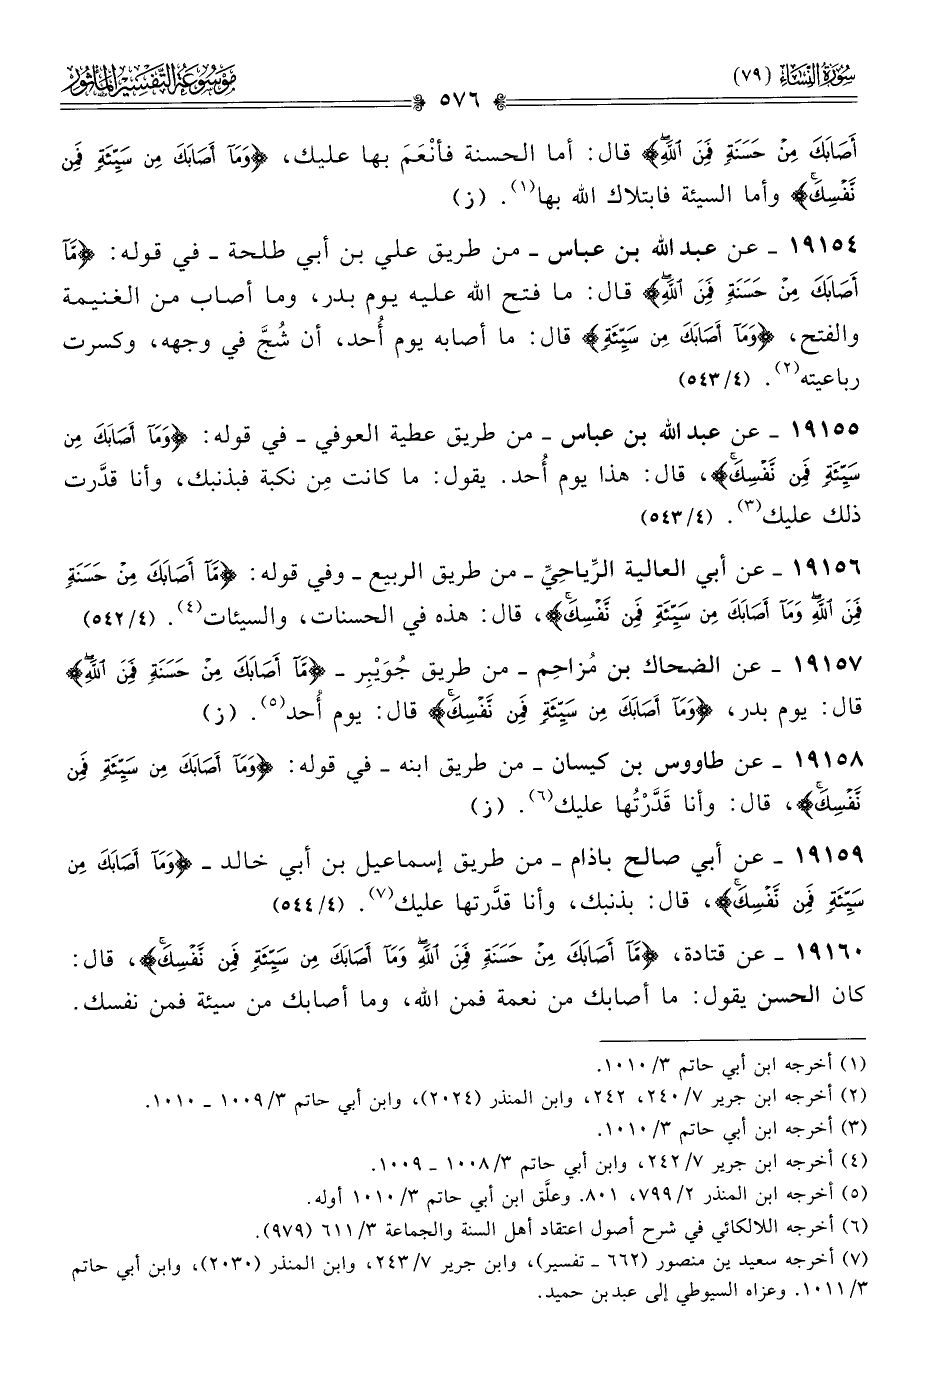 سُورَةُ النِّسَاءِ (٧٩)
مَوْسُوعَةُ التَّفْسِيرِ المَأْثُور
٥٧٦
أَصَابَكَ مِنْ حَسَنَةٍ فَمِنَ ٱللَّهِۖ﴾ قال: أما الحسنة فأنْعَمَ بها عليك، ﴿وَمَآ أَصَابَكَ مِن سَيِّئَةٍ فَمِن
نَّفْسِكَۚ﴾ وأما السيئة فابتلاك الله بها(١). (ز)
١٩١٥٤ ـ عن عبد الله بن عباس ـ من طريق علي بن أبي طلحة ـ في قوله: ﴿مَّآ
أَصَابَكَ مِنْ حَسَنَةٍ فَمِنَ ٱللَّهِۖ﴾ قال: ما فتح الله عليه يوم بدر، وما أصاب من الغنيمة
والفتح، ﴿وَمَآ أَصَابَكَ مِن سَيِّئَةٍ﴾ قال: ما أصابه يوم أُحد، أن شُجَّ في وجهه، وكسرت
رباعيته(٢). (٥٤٣/٤)
١٩١٥٥ ـ عن عبد الله بن عباس ـ من طريق عطية العوفي ـ في قوله: ﴿وَمَآ أَصَابَكَ مِن
سَيِّئَةٍ فَمِن نَّفْسِكَۚ﴾، قال: هذا يوم أُحد. يقول: ما كانت مِن نكبة فبذنبك، وأنا قدَّرت
ذلك عليك(٣). (٥٤٣/٤)
١٩١٥٦ ـ عن أبي العالية الرِّياحِيِّ ـ من طريق الربيع ـ وفي قوله: ﴿مَّآ أَصَابَكَ مِنْ حَسَنَةٍ
فَمِنَ ٱللَّهِۖ وَمَآ أَصَابَكَ مِن سَيِّئَةٍ فَمِن نَّفْسِكَۚ﴾، قال: هذه في الحسنات، والسيئات(٤). (٥٤٢/٤)
١٩١٥٧ ـ عن الضحاك بن مُزاحِم ـ من طريق جُوَيْبِر ـ ﴿مَّآ أَصَابَكَ مِنْ حَسَنَةٍ فَمِنَ ٱللَّهِۖ﴾
قال: يوم بدر، ﴿وَمَآ أَصَابَكَ مِن سَيِّئَةٍ فَمِن نَّفْسِكَۚ﴾ قال: يوم أُحد(٥). (ز)
١٩١٥٨ ـ عن طاووس بن كيسان ـ من طريق ابنه ـ في قوله: ﴿وَمَآ أَصَابَكَ مِن سَيِّئَةٍ فَمِن
نَّفْسِكَۚ﴾، قال: وأنا قَدَّرْتُها عليك(٦). (ز)
١٩١٥٩ ـ عن أبي صالح باذام ـ من طريق إسماعيل بن أبي خالد ـ ﴿وَمَآ أَصَابَكَ مِن
سَيِّئَةٍ فَمِن نَّفْسِكَۚ﴾، قال: بذنبك، وأنا قدَّرتها عليك(٧). (٥٤٤/٤)
١٩١٦٠ ـ عن قتادة، ﴿مَّآ أَصَابَكَ مِنْ حَسَنَةٍ فَمِنَ ٱللَّهِۖ وَمَآ أَصَابَكَ مِن سَيِّئَةٍ فَمِن نَّفْسِكَۚ﴾، قال:
كان الحسن يقول: ما أصابك من نعمة فمن الله، وما أصابك من سيئة فمن نفسك.
(١) أخرجه ابن أبي حاتم ١٠١٠/٣.
(٢) أخرجه ابن جرير ٢٤٠/٧، ٢٤٢، وابن المنذر (٢٠٢٤)، وابن أبي حاتم ١٠٠٩/٣ ـ ١٠١٠.
(٣) أخرجه ابن أبي حاتم ١٠١٠/٣.
(٤) أخرجه ابن جرير ٢٤٢/٧، وابن أبي حاتم ١٠٠٨/٣ ـ ١٠٠٩.
(٥) أخرجه ابن المنذر ٧٩٩/٢، ٨٠١. وعلَّق ابن أبي حاتم ١٠١٠/٣ أوله.
(٦) أخرجه اللالكائي في شرح أصول اعتقاد أهل السنة والجماعة ٦١١/٣ (٩٧٩).
(٧) أخرجه سعيد بن منصور (٦٦٢ ـ تفسير)، وابن جرير ٢٤٣/٧، وابن المنذر (٢٠٣٠)، وابن أبي حاتم
١٠١١/٣. وعزاه السيوطي إلى عبد بن حميد.